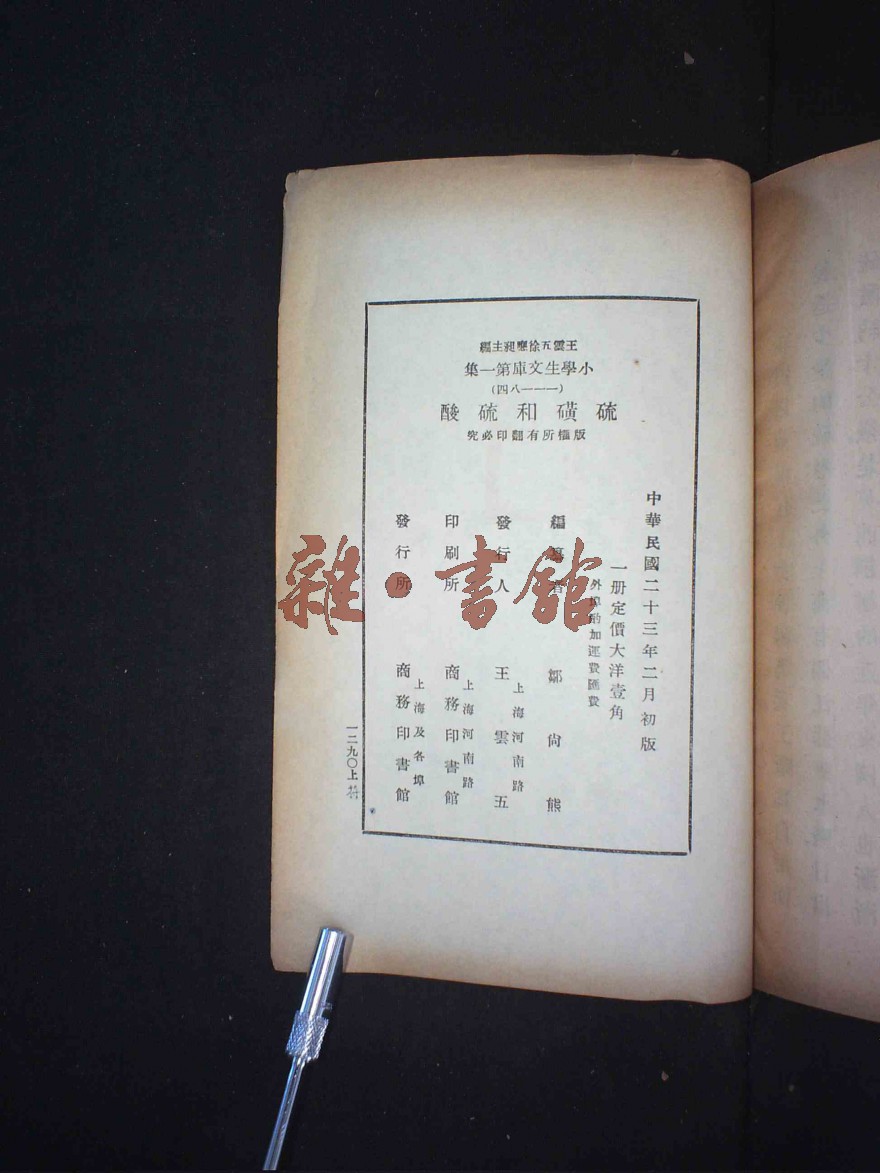 王雲五徐應昶主編
小學生文庫第一集
(一——八四)
硫磺和硫酸
版權所有翻印必究
中華民國二十三年二月初版
一册定價大洋壹角
外埠酌加運費匯費
編纂者 鄒尙熊
發行人 王雲五
上海河南路
印刷所 商務印書館
上海河南路
發行所 商務印書館
上海及各埠
一二九〇上
雜·書館